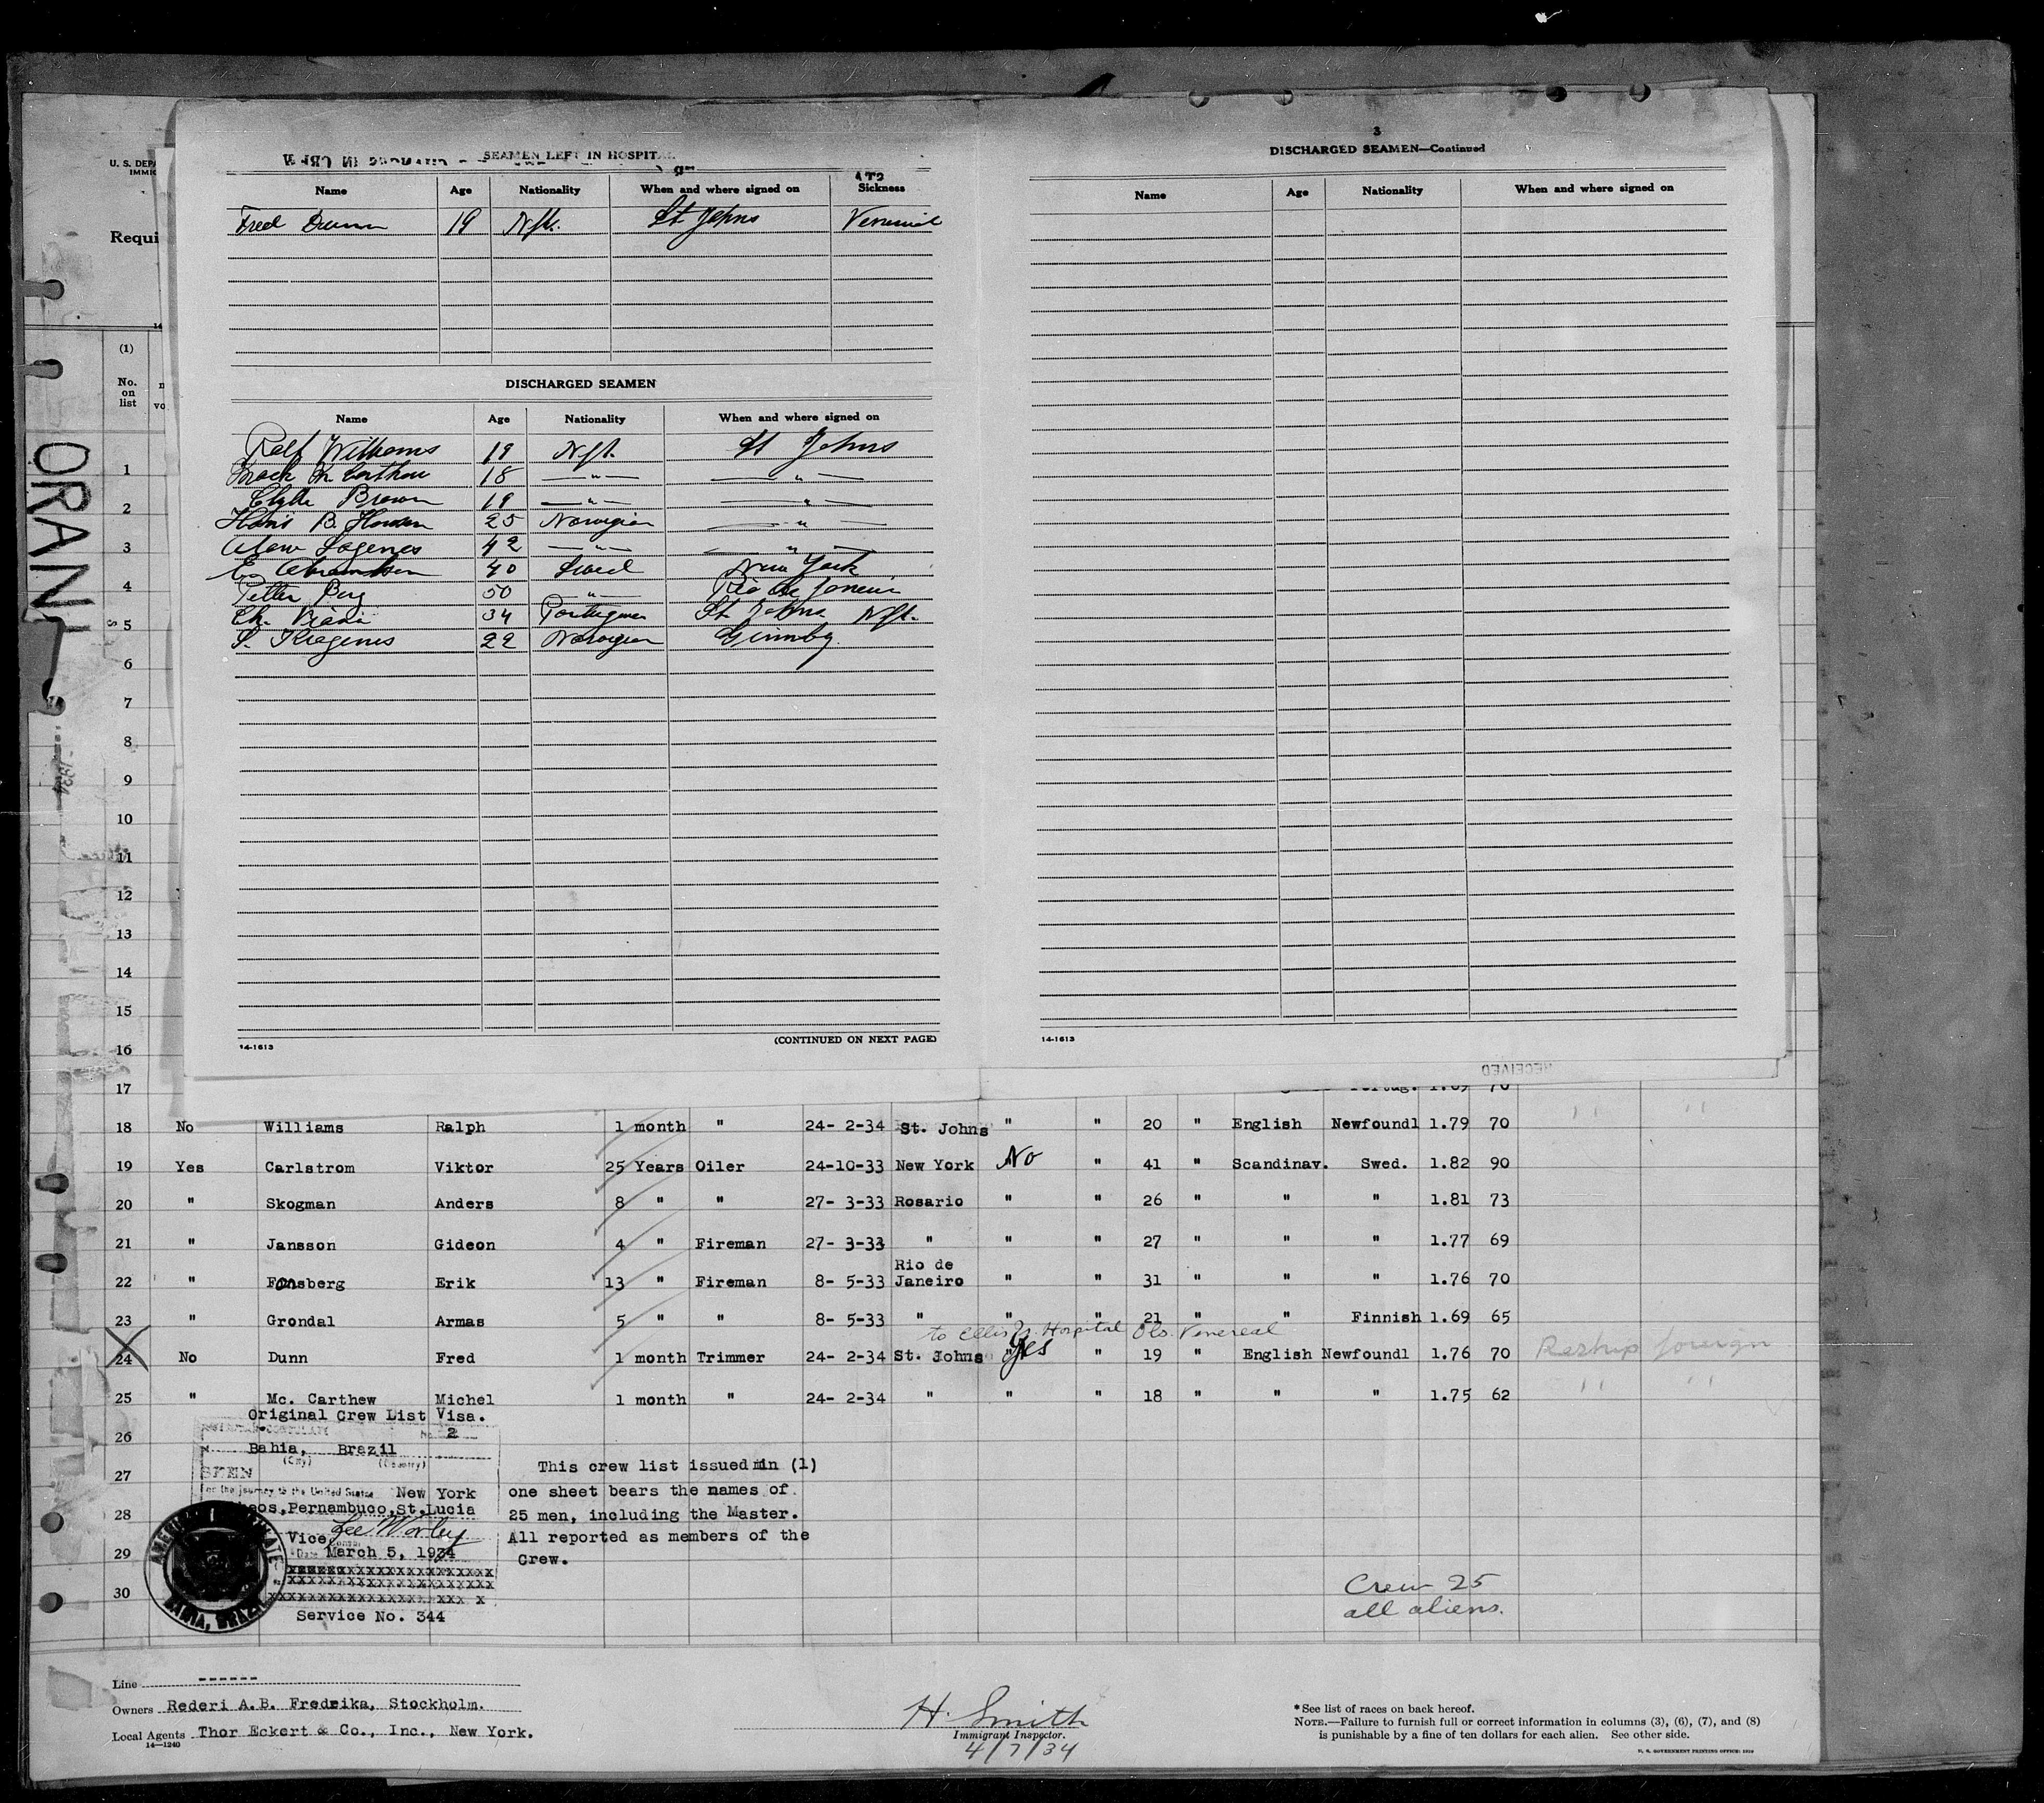 U. S. DEPA
IMMIG
Requi
ORANI
1934
SEAMEN LEFT IN HOSPITAL
Name Age Nationality When and where signed on Sickness
Fred Dunn 19 Nfl. St Johns Venerial
DISCHARGED SEAMEN
Name Age Nationality When and where signed on
Ralf Williams 19 Nfl. St Johns
18 —"— —"—
Clyde Brown 19 —"— —"—
Hans B. 25 Norwegian —"—
42 —"— —"—
E. 40 Swed New York
Petter Berg 50 —"— Rio de Janeiro
Ch. 34 Portuguese St Johns Nfl.
S. 22 Norwegian Grimsby
14-1613
(CONTINUED ON NEXT PAGE)
3
DISCHARGED SEAMEN—Continued
Name Age Nationality When and where signed on
14-1613
RECEIVED
(1)
No. on list
1
2
3
4
5
6
7
8
9
10
11
12
13
14
15
16
17 Portug. 1.69 70
18 No Williams Ralph 1 month " 24- 2-34 St. Johns " " 20 " English Newfoundl 1.79 70 " "
19 Yes Carlstrom Viktor 25 Years Oiler 24-10-33 New York No " 41 " Scandinav. Swed. 1.82 90
20 " Skogman Anders 8 " " 27- 3-33 Rosario " " 26 " " " 1.81 73
21 " Jansson Gideon 4 " Fireman 27- 3-33 " " " 27 " " " 1.77 69
Rio de
22 " Fonsberg Erik 13 " Fireman 8- 5-33 Janeiro " " 31 " " " 1.76 70
23 " Grondal Armas 5 " " 8- 5-33 " " " 21 " " Finnish 1.69 65
to Ellis Is. Hospital Obs. Venereal
24 No Dunn Fred 1 month Trimmer 24- 2-34 St. Johns Yes " 19 " English Newfoundl 1.76 70 Reship foreign
25 " Mc. Carthew Michel 1 month " 24- 2-34 " " " 18 " " " 1.75 62 " "
Original Crew List Visa.
26
No. 2
Bahia, Brazil
(City) (Country)
27
SEEN
for the journey to the United States New York
28
eos,Pernambuco,St.Lucia
Lee Worley
Vice Consul
29
Date March 5, 1934
30
Service No. 344
AMERICAN CONSULATE
BAHIA, BRAZIL
This crew list issued in (1)
one sheet bears the names of
25 men, including the Master.
All reported as members of the
Crew.
Crew 25
all aliens.
Line ------
Owners Rederi A.B. Fredrika, Stockholm.
Local Agents Thor Eckert & Co., Inc., New York.
14—1240
H. Smith
Immigrant Inspector.
4/7/34
*See list of races on back hereof.
NOTE.—Failure to furnish full or correct information in columns (3), (6), (7), and (8)
is punishable by a fine of ten dollars for each alien. See other side.